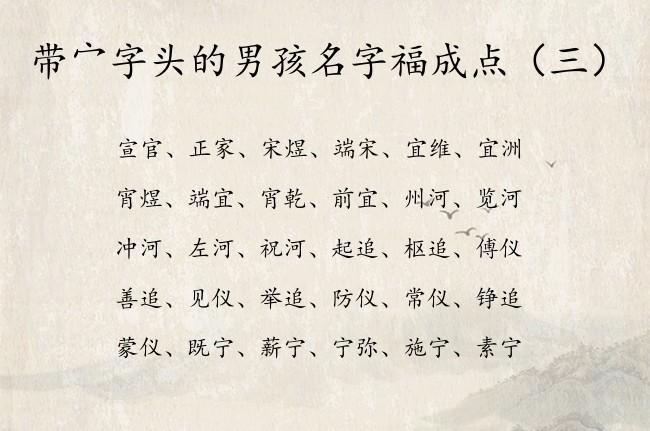 带宀字头的男孩名字福成点（三）
宣官、正家、宋煜、端宋、宜维、宜洲
宵煜、端宜、宵乾、前宜、州河、览河
冲河、左河、祝河、起追、枢追、傅仪
善追、见仪、举追、防仪、常仪、铮追
蒙仪、既宁、薪宁、宁弥、施宁、素宁